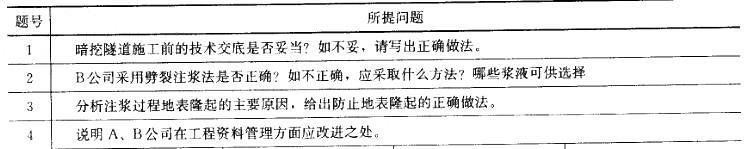 题号 所提问题
1 暗挖隧道施工前的技术交底是否妥当？如不妥，请写出正确做法。
2 B公司采用劈裂注浆法是否正确？如不正确，应采取什么方法？哪些浆液可供选择
3 分析注浆过程地表隆起的主要原因，给出防止地表隆起的正确做法。
4 说明 A、B公司在工程资料管理方面应改进之处。